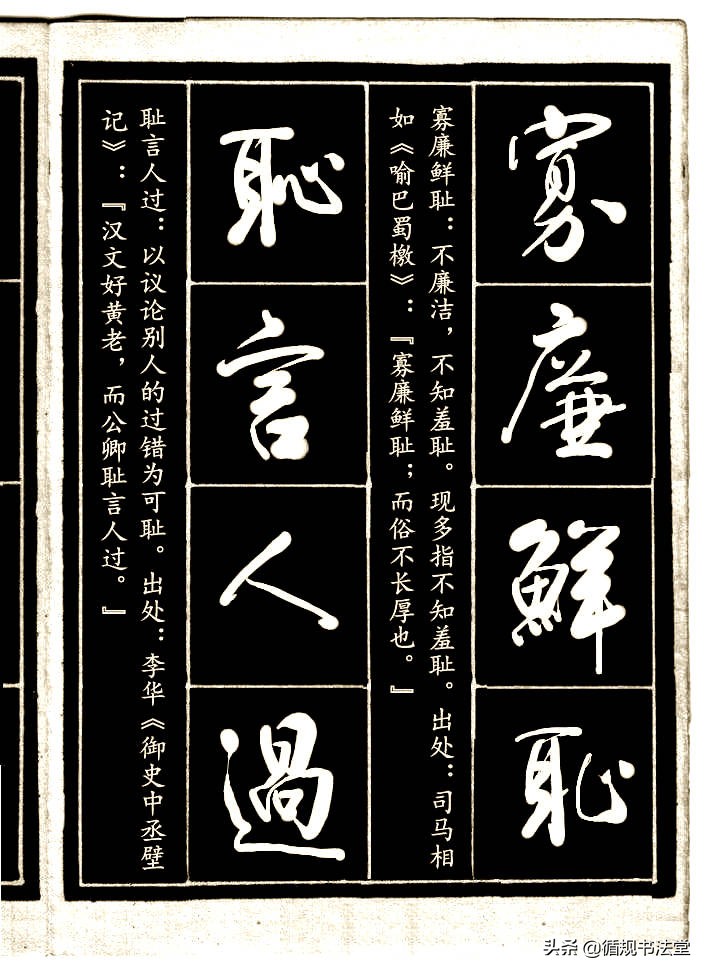 寡廉鲜耻
寡廉鲜耻：不廉洁，不知羞耻。现多指不知羞耻。出处：司马相
如《喻巴蜀檄》：『寡廉鲜耻；而俗不长厚也。』
恥言人過
耻言人过：以议论别人的过错为可耻。出处：李华《御史中丞壁
记》：『汉文好黄老，而公卿耻言人过。』
头条 @循规书法堂